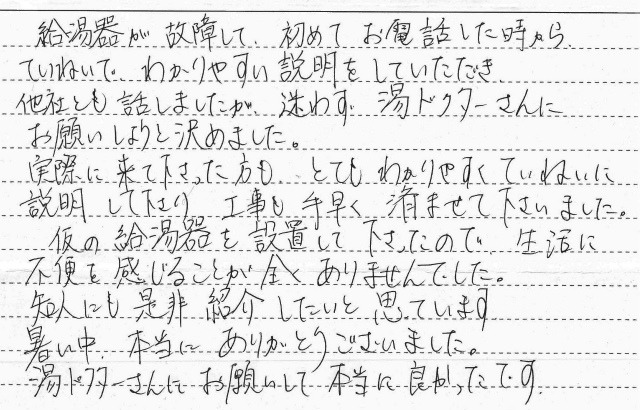 給湯器が故障して、初めてお電話した時から、
ていねいで、わかりやすい説明をしていただき
他社とも話しましたが、迷わず湯ドクターさんに
お願いしようと決めました。
実際に来て下さった方も、とてもわかりやすくていねいに
説明して下さり、工事も手早く済ませて下さいました。
仮の給湯器を設置して下さったので、生活に
不便を感じることが全くありませんでした。
知人にも是非紹介したいと思っています
暑い中、本当にありがとうございました。
湯ドクターさんにお願いして本当に良かったです。